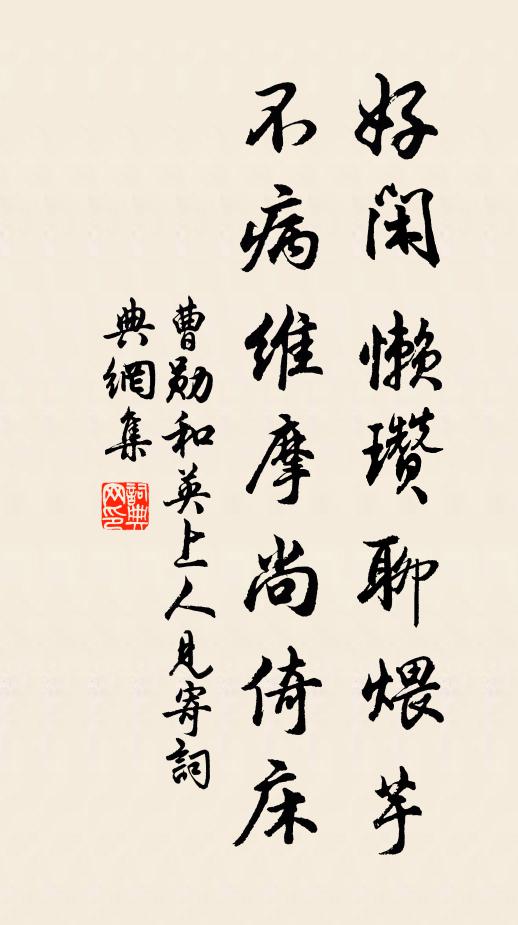 好闲懒瓒聊煨芋
不病维摩尚倚床
曹勋和英上人见寄词
典網集
詞典网印